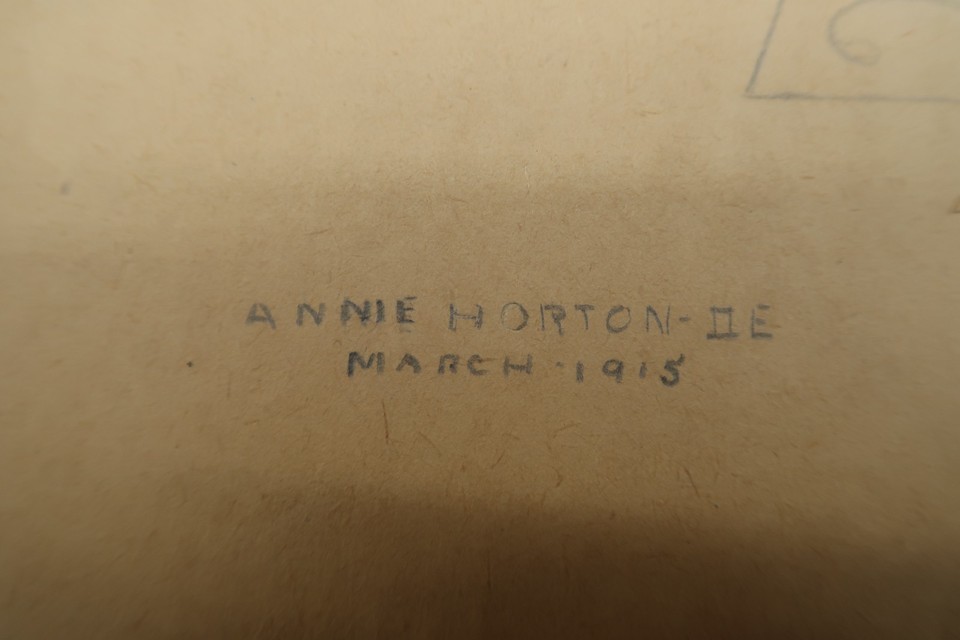 ANNIE HORTON-IIE
MARCH·1915